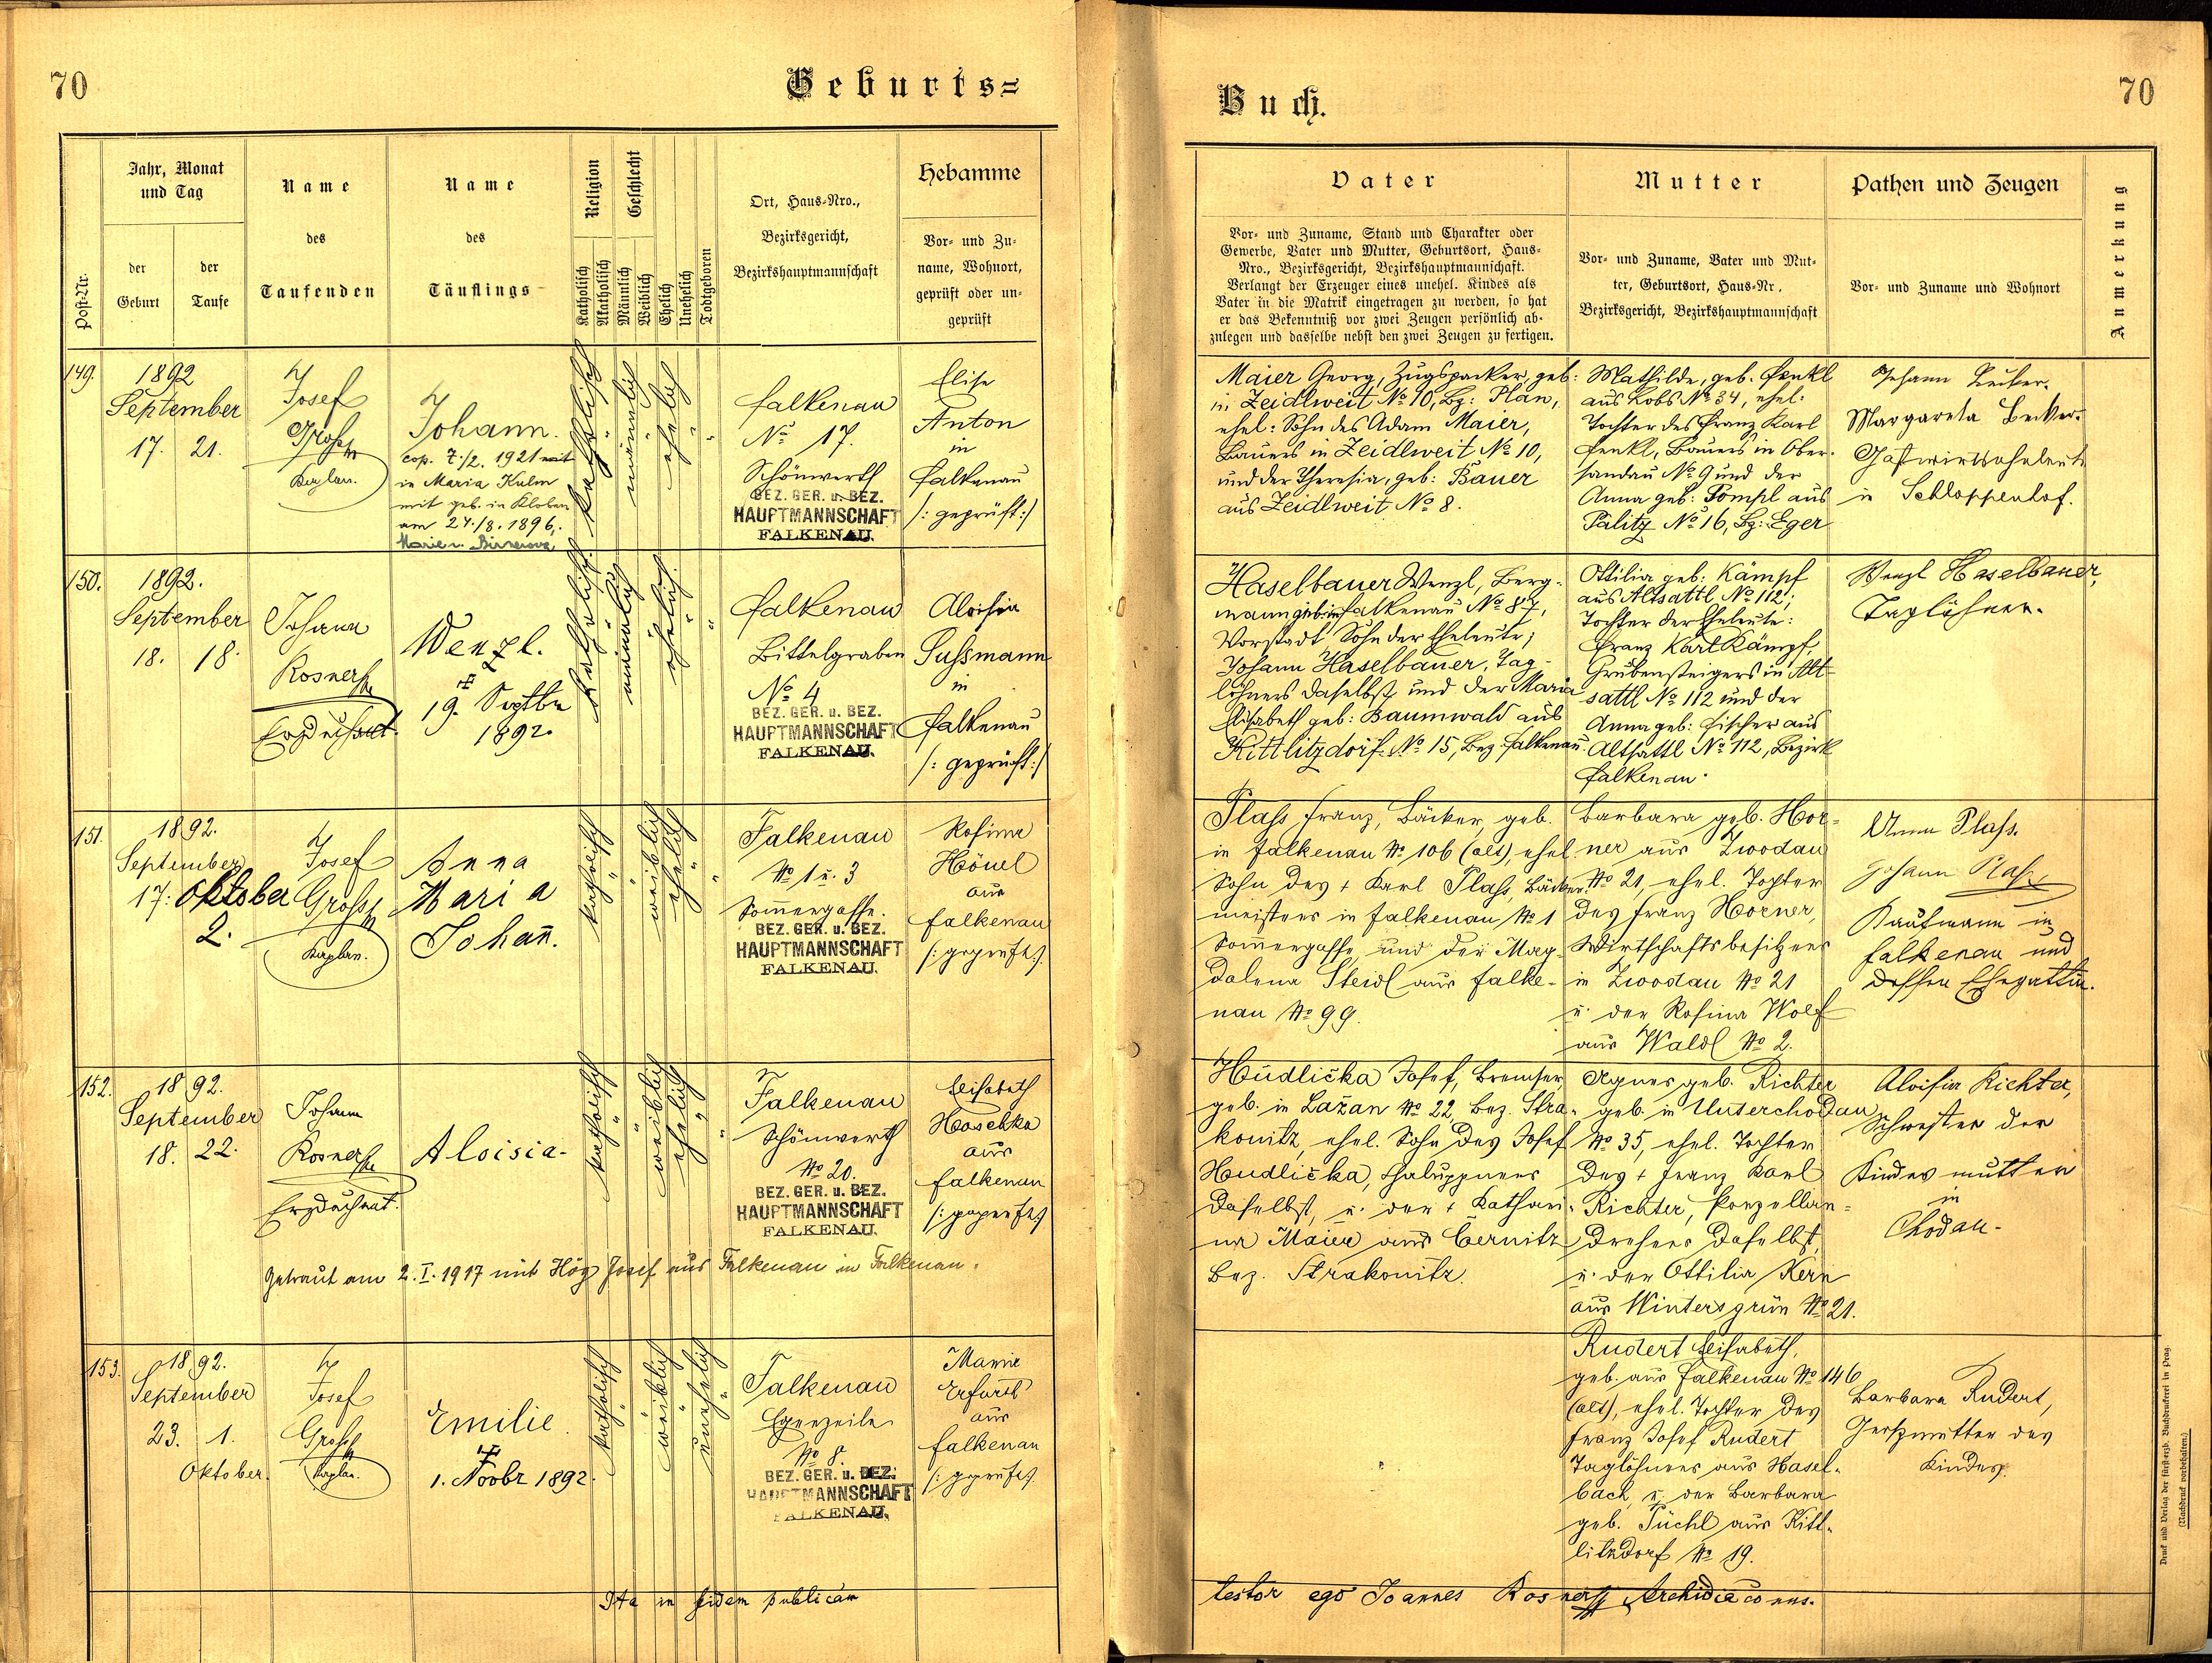 70
Geburts=
Jahr, Monat
und Tag
Name
des
Taufenden
Name
des
Täuflings
Religion
Geschlecht
Ort, Haus-Nro.,
Bezirksgericht,
Bezirkshauptmannschaft
Hebamme
Vor- und Zu-
name, Wohnort,
geprüft oder un-
geprüft
Post-Nr.
der
Geburt
der
Taufe
Katholisch
Akatholisch
Männlich
Weiblich
Ehelich
Unehelich
Todtgeboren
149.
1892
September
17. 21.
Josef
Grossy
Kaplan.
Johann.
cop. 7./2. 1921 mit
in Maria Kulm
mit geb. in Kloben
am 24./8. 1896,
katholisch
männlich
ehelich
Falkenau
No 17.
Schönwerth
BEZ. GER. u. BEZ.
HAUPTMANNSCHAFT
FALKENAU.
Elise
Anton
in
Falkenau
/: geprüft :/
150.
1892.
September
18. 18.
Johann
Rosner
Erzdechant.
Wenzl.
19. Septbr
1892.
katholisch
männlich
ehelich.
Falkenau
Bittelgraben
No 4
BEZ. GER. u. BEZ.
HAUPTMANNSCHAFT
FALKENAU.
Aloisia
Sussmann
in
Falkenau
/: geprüft :/
151.
1892.
September
17: Oktober
2.
Josef
Grossy
Kaplan.
Anna
Maria
Johañ.
katholisch
weiblich
ehelich
Falkenau
No 1 u. 3
Som̄ergasse.
BEZ. GER. u. BEZ.
HAUPTMANNSCHAFT
FALKENAU.
Rosina
Hönel
aus
Falkenau
/: geprüft :/
152.
1892.
September
18. 22.
Johann
Rosner
Erzdechant.
Aloisia.
katholisch
weiblich
ehelich
Falkenau
Schönwerth
No 20.
BEZ. GER. u. BEZ.
HAUPTMANNSCHAFT
FALKENAU.
Elisabeth
Hoschka
aus
Falkenau
/: geprüft :/
Getraut am 2. I. 1917 mit Högg Josef aus Falkenau in Falkenau.
153.
1892.
September
23. 1.
Oktober.
Josef
Grossy
Kaplan.
Emilie
1. Novbr 1892.
katholisch
weiblich
unehelich
Falkenau
Egerzeile
No 8.
BEZ. GER. u. BEZ.
HAUPTMANNSCHAFT
FALKENAU.
Marie
Erfurth
aus
Falkenau
/: geprüft :/
Ita in fidem publicam
Buch.
70
Vater
Vor- und Zuname, Stand und Charakter oder
Gewerbe, Vater und Mutter, Geburtsort, Haus-
Nro., Bezirksgericht, Bezirkshauptmannschaft.
Verlangt der Erzeuger eines unehel. Kindes als
Vater in die Matrik eingetragen zu werden, so hat
er das Bekenntniß vor zwei Zeugen persönlich ab-
zulegen und dasselbe nebst den zwei Zeugen zu fertigen.
Mutter
Vor- und Zuname, Vater und Mut-
ter, Geburtsort, Haus-Nr.
Bezirksgericht, Bezirkshauptmannschaft
Pathen und Zeugen
Vor- und Zuname und Wohnort
Anmerkung
Maier Georg, Zugspacker, geb:
in Zeidlweit No 10, Bz: Plan,
ehel: Sohn des Adam Maier,
Bauers in Zeidlweit No 10,
und der Theresia, geb: Bauer
aus Zeidlweit No 8.
Mathilde, geb. Fenkl
aus Lobs No 34, ehel:
Tochter des Franz Karl
Fenkl, Bauers in Ober-
sandau No 9 und der
Anna geb: Pompl aus
Palitz No 16, Bz: Eger
Johann
Margareta Becker.
Gastwirtseheleute
in Schloppenhof.
Haselbauer Wenzl, Berg-
mann geb: in Falkenau No 87,
Vorstadt Sohn der Eheleute;
Johann Haselbauer, Tag-
löhners daselbst und der Maria
Elisabeth geb: Baumwald aus
Kittlitzdorf No 15, Bez: Falkenau.
Ottilia geb: Kämpf
aus Altsattl No 112;
Tochter der Eheleute:
Franz Karl Kämpf,
Grubensteigers in Alt-
sattl No 112 und der
Anna geb: Fischer aus
Altsattl No 112, Bezirk
Falkenau.
Wenzl Haselbauer,
Taglöhner.
Plass Franz, Bäcker, geb.
in Falkenau No 106 (alt), ehel.
Sohn des + Karl Plass, Bäcker-
meisters in Falkenau No 1
Som̄ergasse und der Mag-
dalena Steidl aus Falke-
nau No 99.
Barbara geb. Hor-
ner aus Zwodau
No 21, ehel. Tochter
des Franz Horner,
Wirtschaftsbesitzers
in Zwodau No 21
u. der Rosina Wolf
aus Waldl No 2.
Anna Plass.
Johann Plass,
Kaufmann in
Falkenau und
dessen Ehegattin.
Hudlička Josef, Bremser,
geb. in Lažan No 22, Bez. Stra-
konitz, ehel. Sohn des Josef
Hudlička, Chaluppners
daselbst, u. der + Kathari-
na Maier aus Cernitz
Bez. Strakonitz.
Agnes geb. Richter
geb. in Unterchodau
No 35, ehel. Tochter
des + Franz Karl
Richter, Porzellan-
drehers daselbst,
u. der Ottilia Kern
aus Wintersgrün No 21.
Aloisia Richter,
Schwester der
Kindesmutter
in
Chodau.
Rudert Elisabeth,
geb. aus Falkenau No 146
(alt), ehel. Tochter des
Franz Josef Rudert
Taglöhners aus Hasel-
bach, u. der Barbara
geb. Püchl aus Kitt-
litzdorf No 19.
Barbara Rudert,
Großmutter des
Kindes.
testor ego Joannes Rosner Archidiaconus.
Druck und Verlag der fürst-erzb. Buchdruckerei in Prag.
(Nachdruck vorbehalten.)